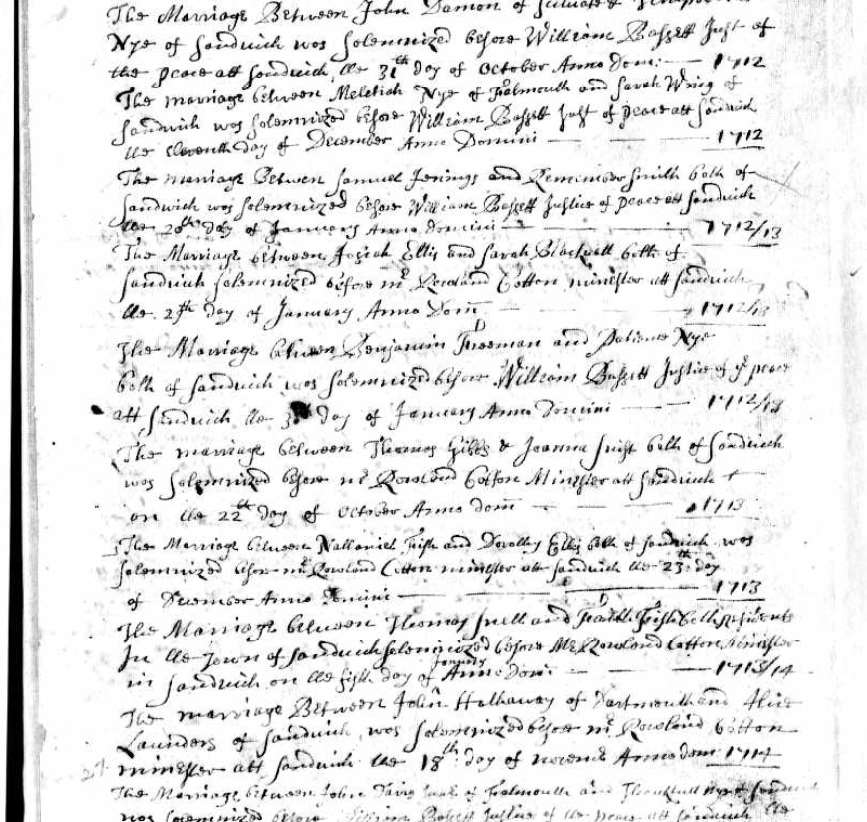 The Marriage Between John Damon of Scituate &
Nye of Sandwich was Solemnized before William Bassett Just of
the peace att Sandwich, the 31th day of October Anno Dom: 1712
The marriage between Meletiah Nye of Falmouth and Sarah of
Sandwich was Solemnized before William Bassett Just of peace att Sandwich
the eleventh day of December Anno Domini 1712
The marriage Betwen Samuel Jenings and Remember Smith both of
Sandwich was Solemnized before William Bassett Justice of peace att Sandwich
the 20th day of January Anno Domini 1712/13
The Marriage between Josiah Ellis and Sarah Blackwell both of
Sandwich Solemnized before mr Rowland Cotton minister att Sandwich
the day of January Anno Dom 1712/13
The Marriage between Benjamin Freeman and Patience Nye
both of Sandwich was Solemnized before William Bassett Justice of ye peace
att Sandwich the day of January Anno Domini 1712/13
The marriage between Thomas Gibbs & Joanna Swift both of Sandwich
was Solemnized before mr Rowland Cotton Minister att Sandwich
on the 22th day of October Anno dom 1713
The Marriage between Nathaniel and Dorothy Ellis both of Sandwich was
Solemnized before mr Rowland Cotton minister att Sandwich the 23th day
of December Anno Domini 1713
The Marriage between Thomas Snell and both Residents
In the Town of Sandwich Solemnized before Mr Rowland Cotton Minister
in Sandwich on the fifth day of January Anno Dom 1713/14
The marriage Between John Hathaway of Dartmouth and Alice
Launders of Sandwich, was Solemnized before mr Rowland Cotton
minister att Sandwich the 18th day of Anno dom 1714
The Marriage between John Davis of Falmouth and Thankfull Nye of Sandwich
was Solemnized before William Bassett Justice of the peace att Sandwich the